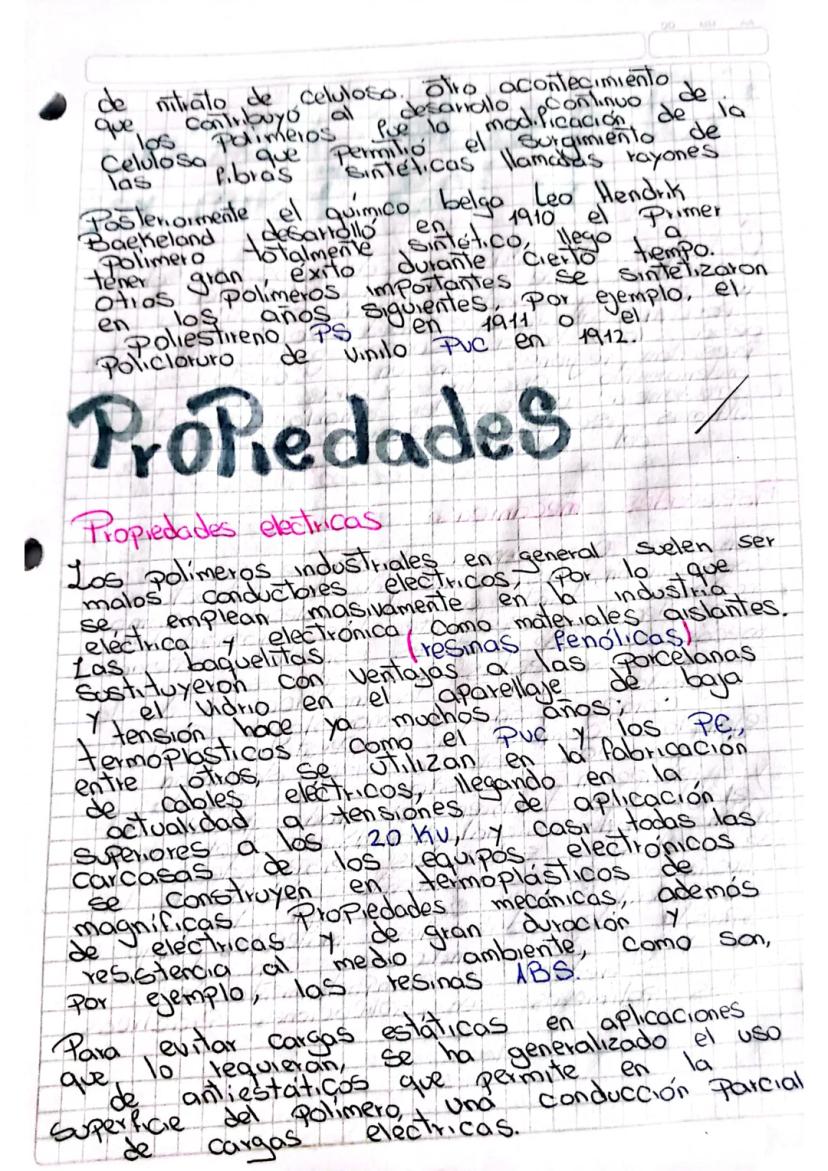 de nitrato de celulosa. Otro acontecimiento
que contribuyó al desarrollo continuo de
los polimeros fue la modificación de la
celulosa que permitio el surgimiento de
las fibras sintéticas llamadas rayones
Posteriormente el químico belga Leo Hendrik
Baekeland desarrolló en 1910 el Primer
Polimero totalmente sintético, llego a
tener gran éxito durante cierto tiempo.
Otros polímeros importantes se sintetizaron
en los años siguientes, por ejemplo, el
poliestireno PS en 1911 o el
Policloruro de vinilo PVC en 1912.
Propiedades
Propiedades electricas
Los polímeros industriales en general suelen ser
malos conductores eléctricos, Por lo que
se emplean masivamente en la industria
eléctrica y electrónica como materiales aislantes.
Las baquelitas (resinas fenólicas)
sustituyeron con ventajas a las porcelanas
y el vidrio en el aparellaje de baja
tensión hace ya muchos años;
termoplasticos como el PVC y los PE,
entre otros, se utilizan en la fabricación
de cables eléctricos, llegando en la
actualidad a tensiones de aplicación
superiores a los 20 KV, y casi todas las
carcasas de los equipos electrónicos
se construyen en termoplásticos de
magníficas Propiedades mecánicas, además
de eléctricas y de gran duración y
resistencia al medio ambiente, como son,
por ejemplo, las resinas ABS.
Para evitar cargas estáticas en aplicaciones
que lo requieran, se ha generalizado el uso
de antiestáticos que permite en la
superficie del polímero, una conducción Parcial
de cargas eléctricas.